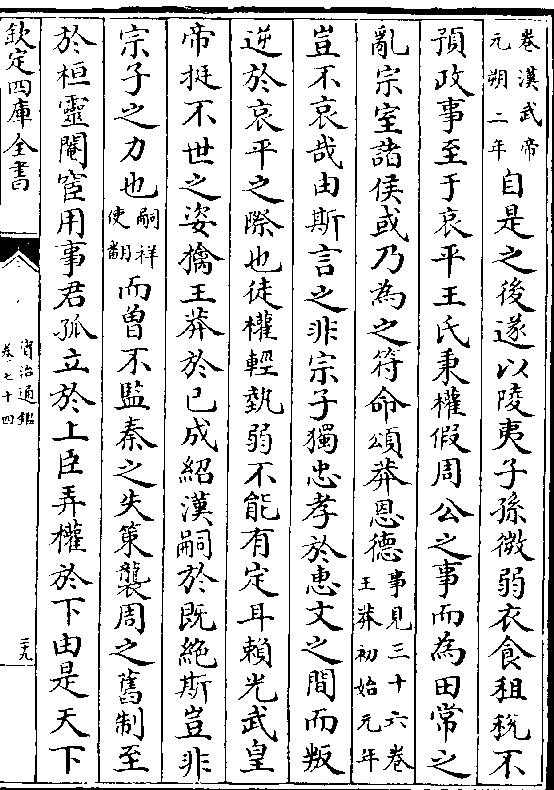 卷漢武帝元朔二年自是之後遂以陵夷子孫微弱衣食租稅不
預政事至于哀平王氏秉權假周公之事而為田常之
亂宗室諸侯或乃為之符命頌莽恩德事見三十六卷王莽初始元年
豈不哀哉由斯言之非宗子獨忠孝於惠文之間而叛
逆於哀平之際也徒權輕勢弱不能有定耳賴光武皇
帝挺不世之姿擒王莽於已成紹漢嗣於既絶斯豈非
宗子之力也嗣祥使翻而曽不監秦之失策襲周之舊制至
於桓靈閹宦用事君孤立於上臣弄權於下由是天下
欽定四庫全書
資治通鑑
卷七十四
三九